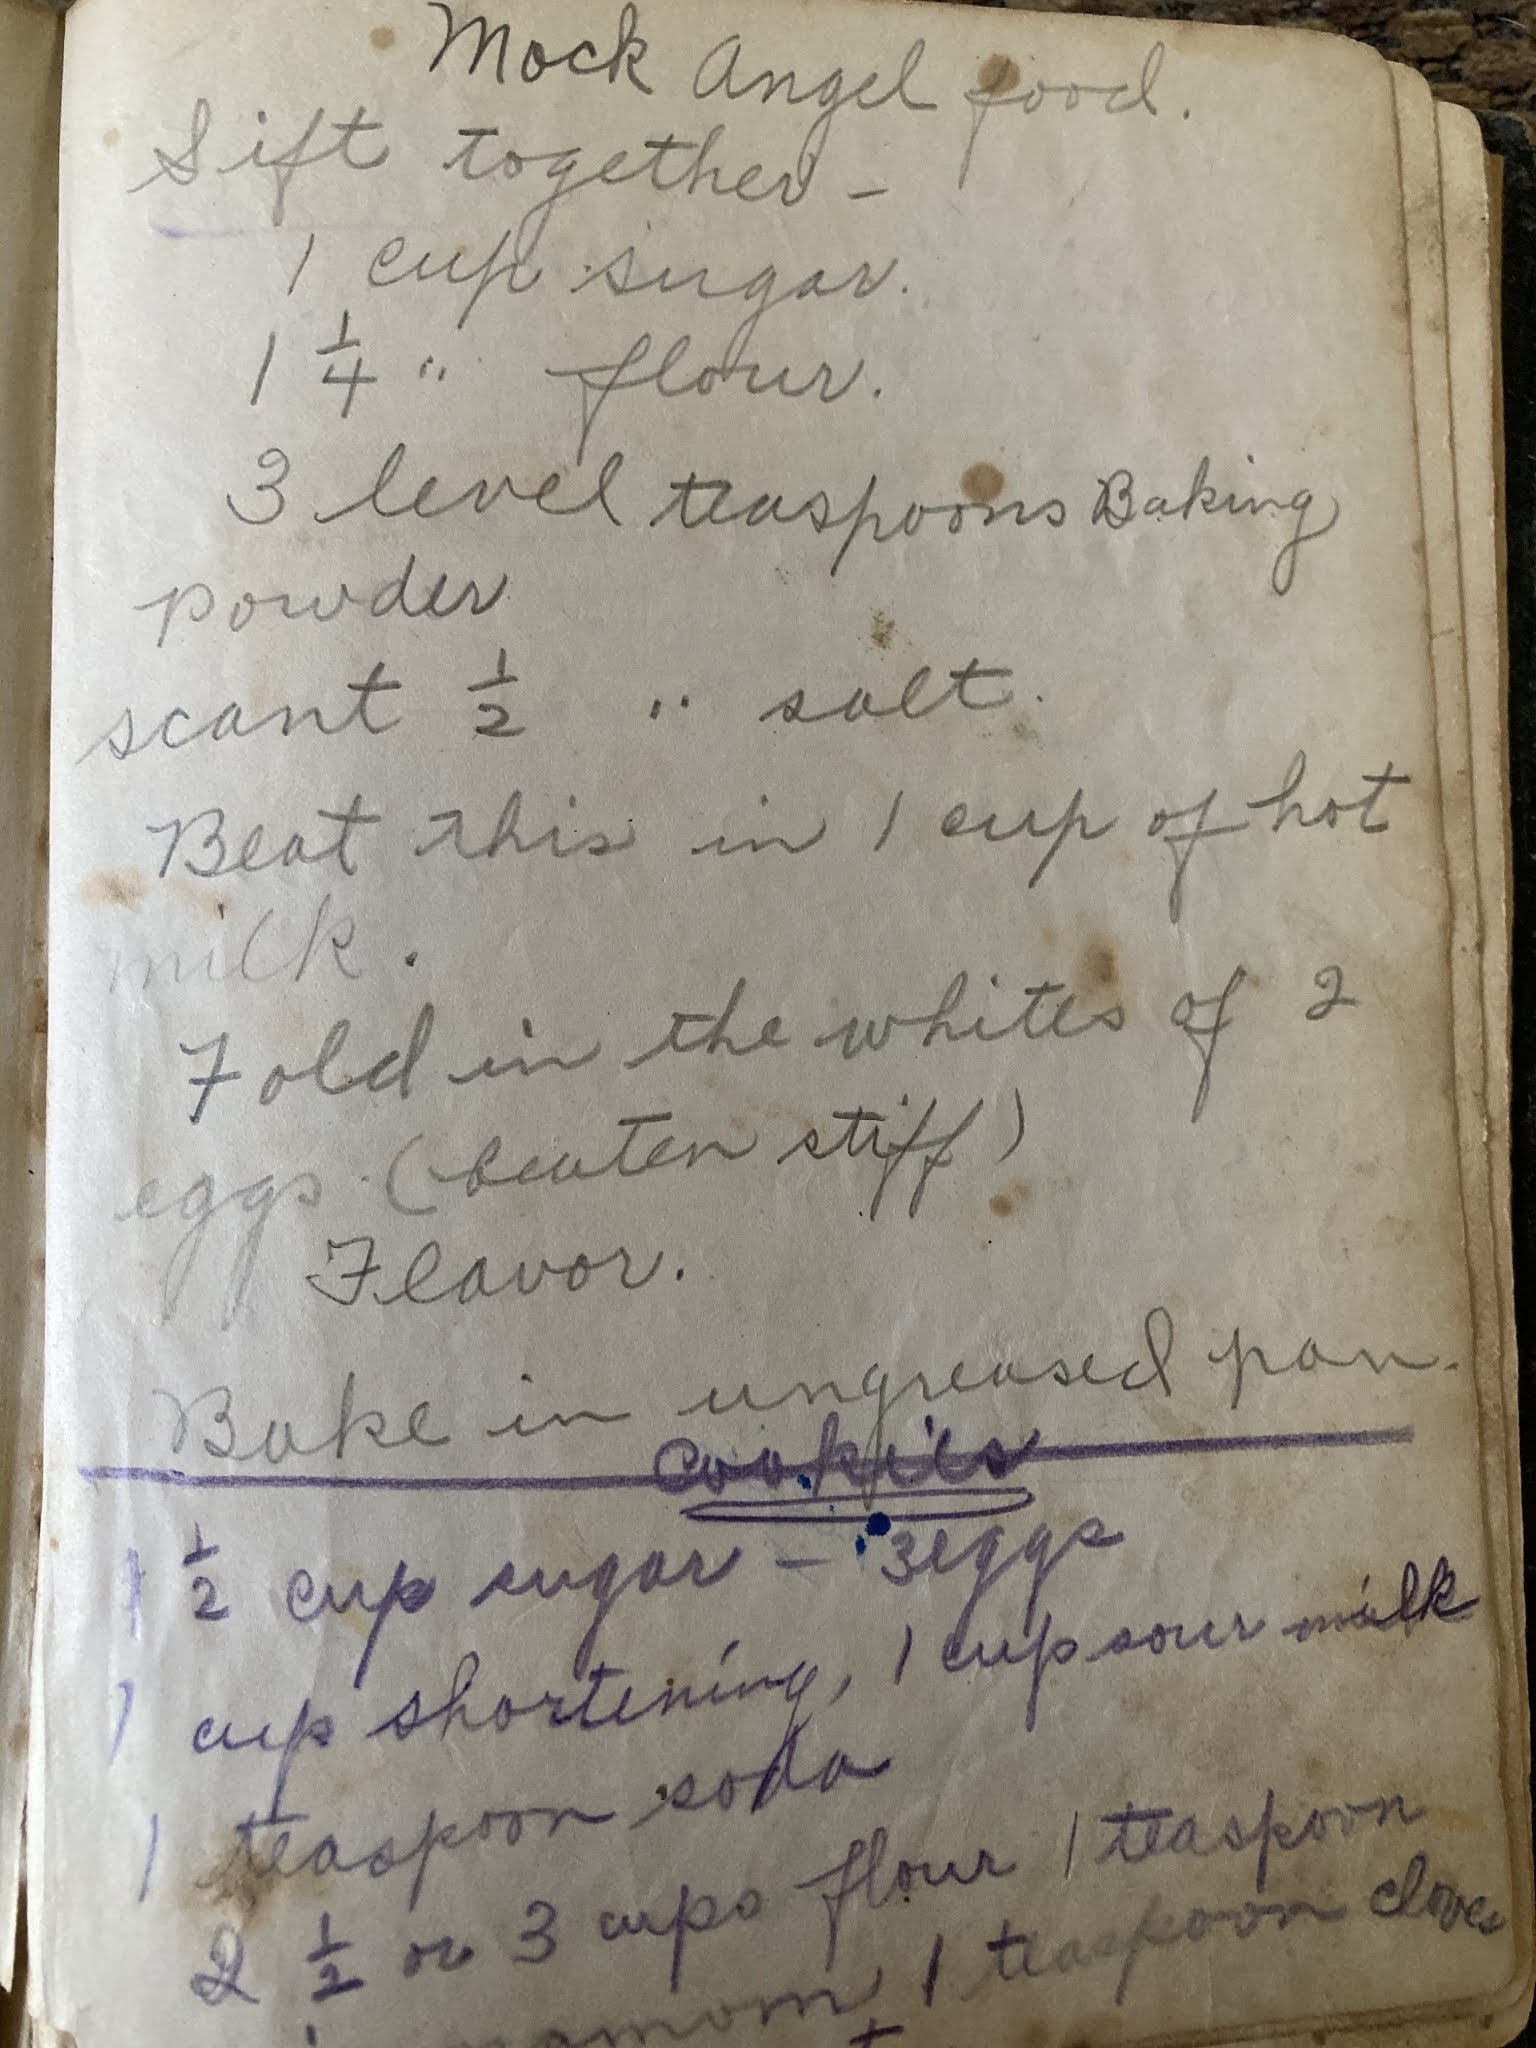 Mock Angel food.
Sift together -
1 cup sugar.
1 1/4 " flour.
3 level teaspoons Baking
powder
scant 1/2 " salt.
Beat this in 1 cup of hot
milk.
Fold in the whites of 2
eggs. (beaten stiff)
Flavor.
Bake in ungreased pan.
Cookies
1 1/2 cup sugar - 3 eggs
1 cup shortening, 1 cup sour milk
1 teaspoon soda
2 1/2 or 3 cups flour 1 teaspoon
1 teaspoon cloves